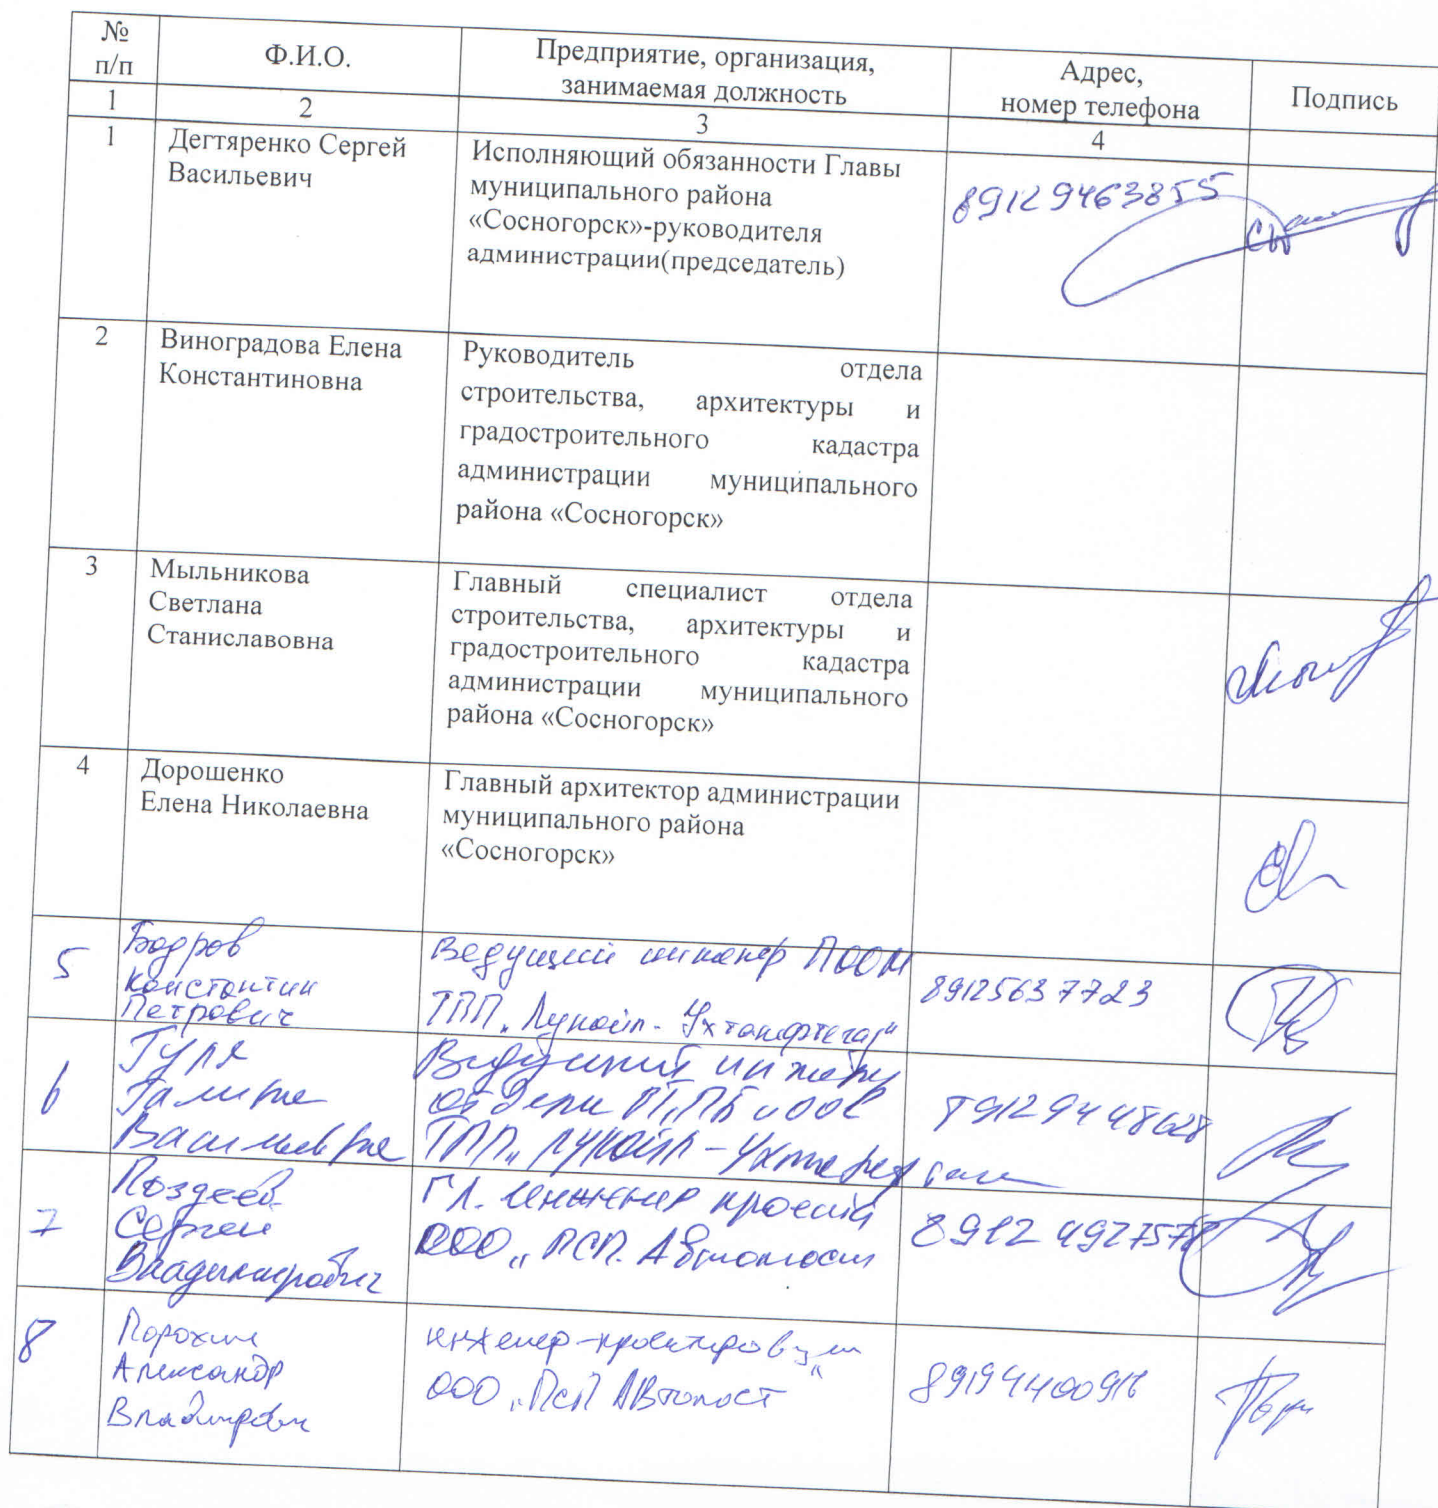 № п/п
Ф.И.О.
Предприятие, организация,
занимаемая должность
Адрес,
номер телефона
Подпись
1
2
3
4
1
Дегтяренко Сергей
Васильевич
Исполняющий обязанности Главы
муниципального района
«Сосногорск»-руководителя
администрации(председатель)
89129463855
2
Виноградова Елена
Константиновна
Руководитель отдела
строительства, архитектуры и
градостроительного кадастра
администрации муниципального
района «Сосногорск»
3
Мыльникова
Светлана
Станиславовна
Главный специалист отдела
строительства, архитектуры и
градостроительного кадастра
администрации муниципального
района «Сосногорск»
4
Дорошенко
Елена Николаевна
Главный архитектор администрации
муниципального района
«Сосногорск»
5
Бодров
Константин
Петрович
Ведущий инженер ПООМ
ТПП „Лукойл-Ухтанефтегаз"
89125637723
6
Гуля
Галина
Васильевна
Ведущий инженер
отдела
ТПП „Лукойл-Ухтанефтегаз
7
Поздеев
Сергей
Владимирович
Гл. инженер проекта
ООО „ПСП. Автомост
8
Порохин
Александр
Владимирович
инженер-проектировщик
ООО „ПСП Автомост"